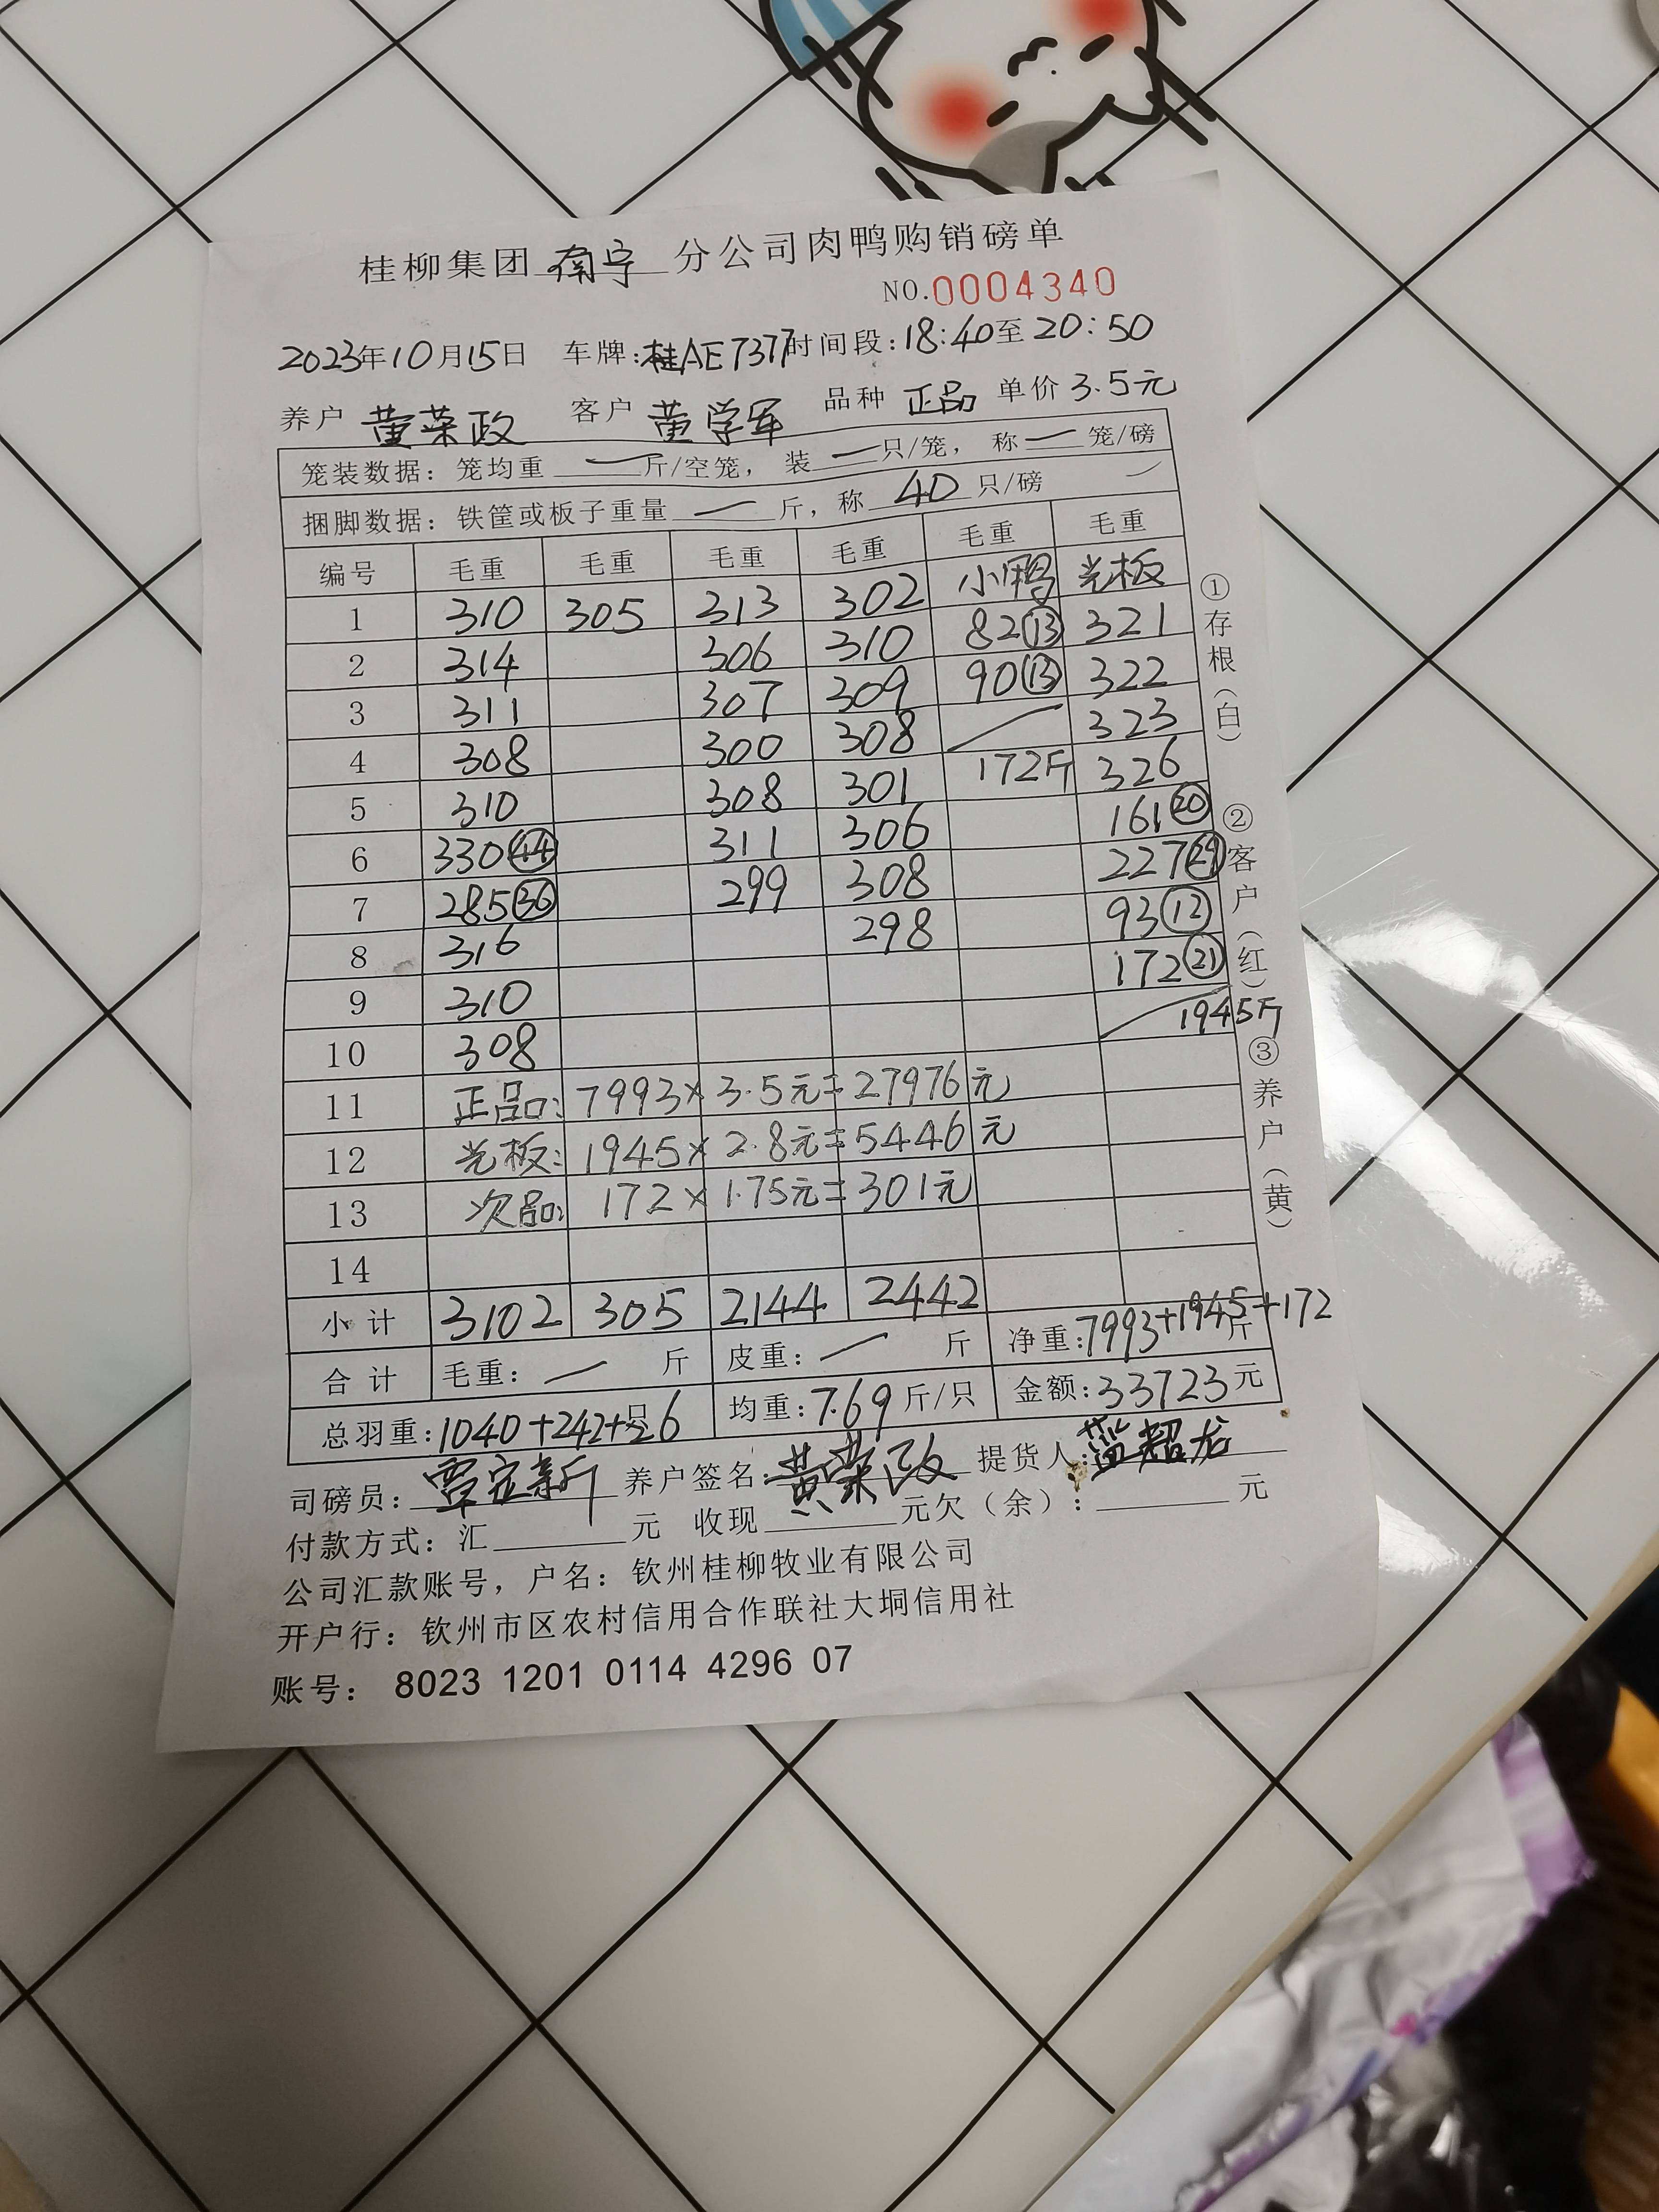 桂柳集团 南宁 分公司肉鸭购销磅单
NO.0004340
2023年10月15日 车牌:桂AE7377 时间段:18:40至20:50
养户 黄荣政 客户 黄学军 品种 正品 单价 3.5元
笼装数据: 笼均重 一 斤/空笼, 装 一 只/笼, 称 一 笼/磅
捆脚数据: 铁筐或板子重量 一 斤, 称 40 只/磅 一
编号 毛重 毛重 毛重 毛重 毛重 毛重
小鸭 光板
1 310 305 313 302 82⑬ 321
2 314 306 310 90⑬ 322
3 311 307 309 323
4 308 300 308 172斤 326
5 310 308 301 161⑳
6 330㊹ 311 306 227
7 285㊱ 299 308 93⑫
8 316 298 172㉑
9 310 1945斤
10 308
11 正品: 7993×3.5元=27976元
12 光板: 1945×2.8元=5446元
13 次品: 172×1.75元=301元
14
小计 3102 305 2144 2442
合计 毛重: 一 斤 皮重: 一 斤 净重:7993+1945+172 斤
总羽重:1040+242+26 只 均重:7.69斤/只 金额:33723元
司磅员: 覃定新 养户签名: 黄荣政 提货人: 蓝超龙
付款方式: 汇 元 收现 元欠(余): 元
公司汇款账号, 户名: 钦州桂柳牧业有限公司
开户行: 钦州市区农村信用合作联社大垌信用社
账号: 8023 1201 0114 4296 07
①存根(白) ②客户(红) ③养户(黄)